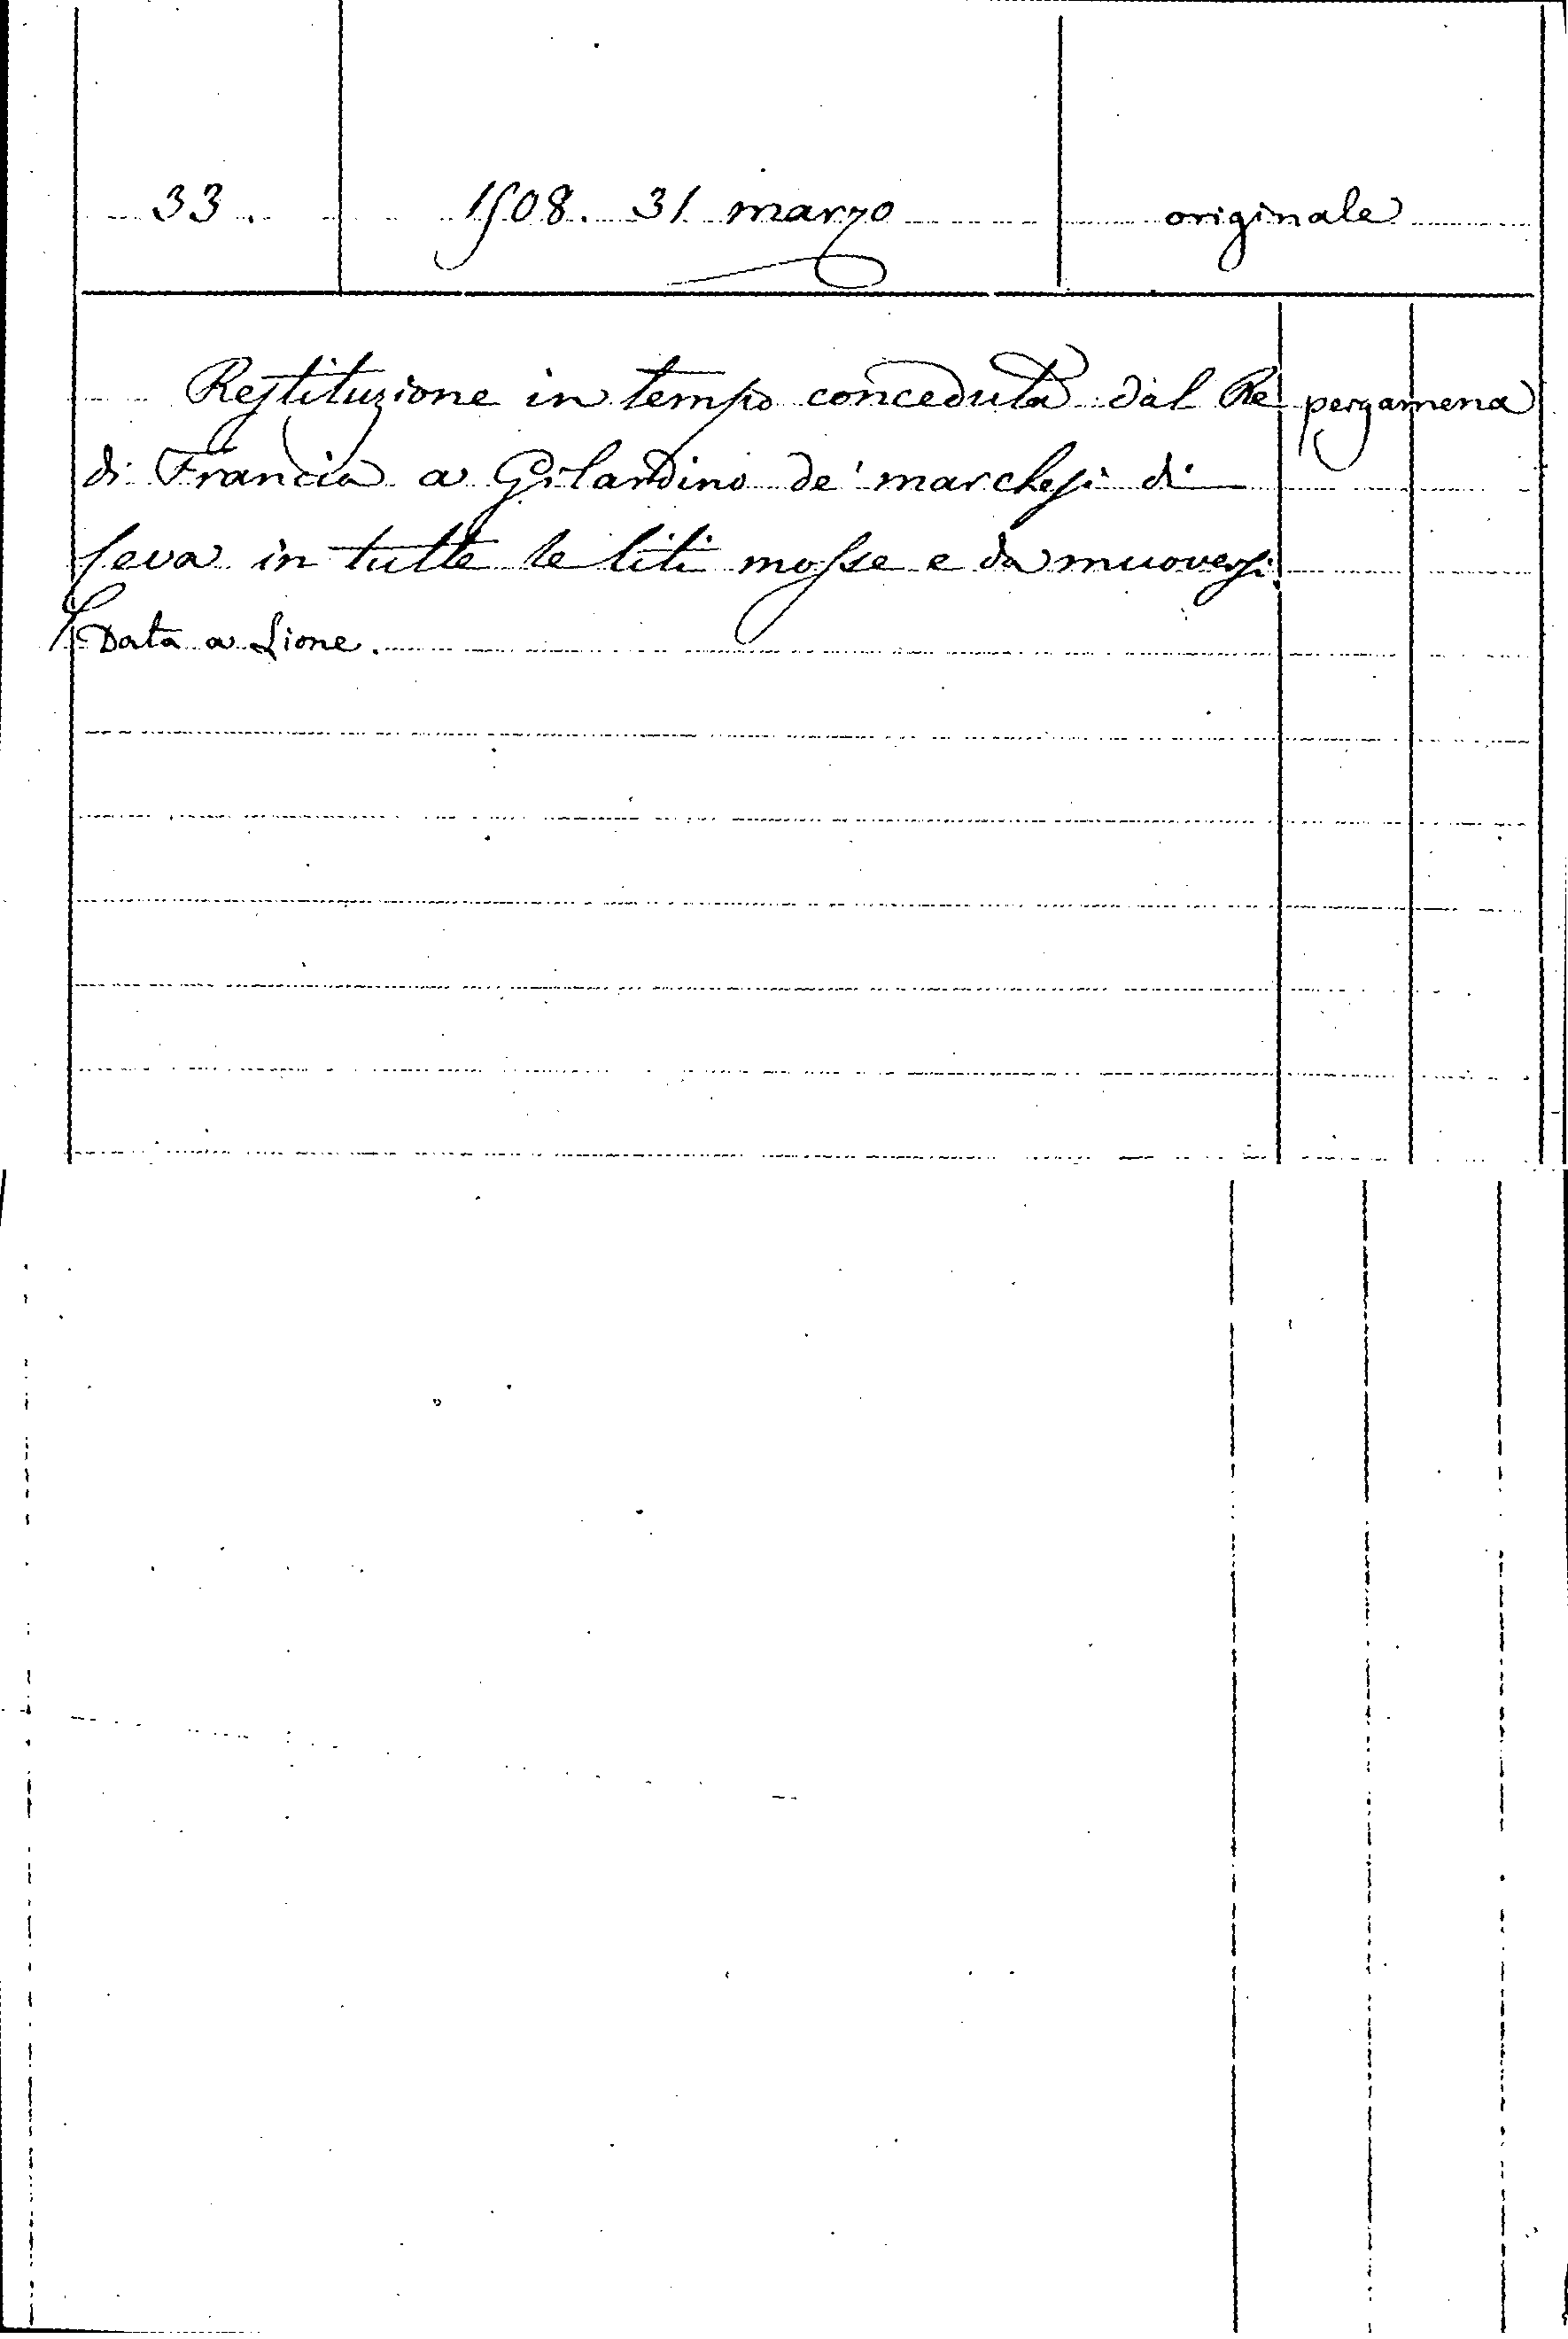 33. 1508. 31 marzo originale
Restituzione in tempo conceduta dal Re pergamena
di Francia a Gilardino de' marchesi di
Ceva in tutte le liti mosse e da muoversi.
Data a Lione.